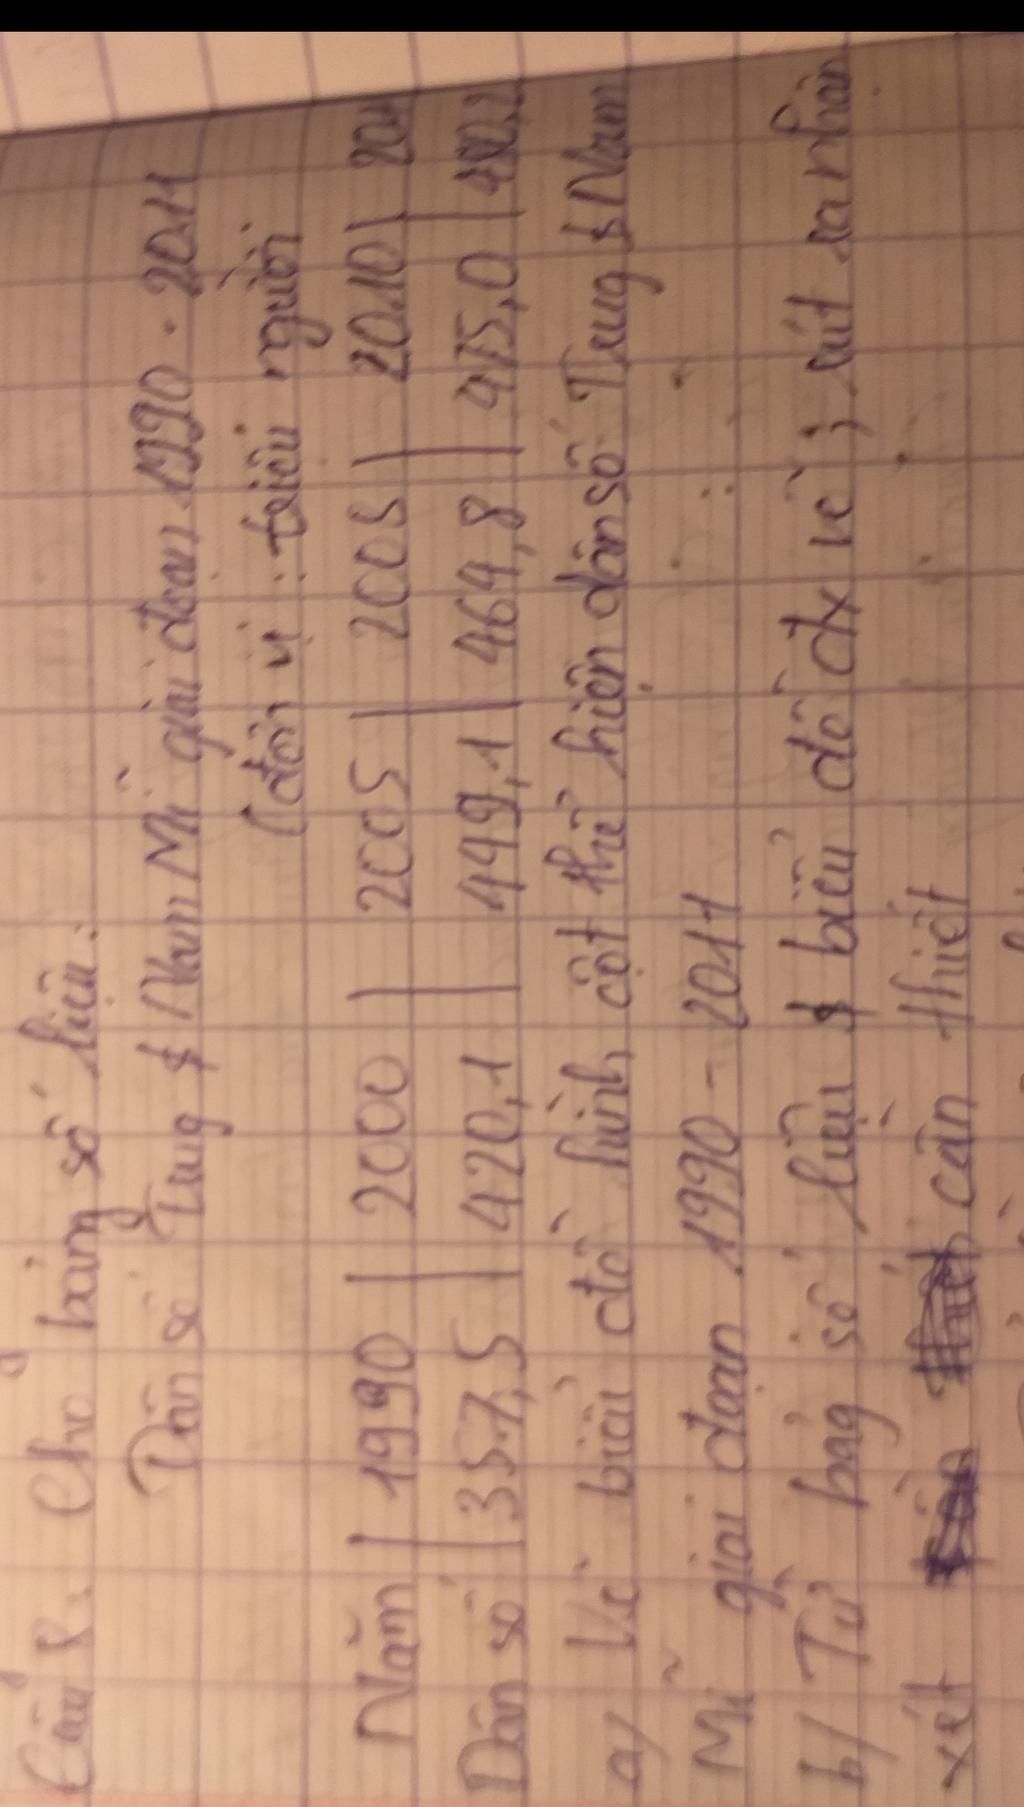 Câu 8. Cho bảng số liệu:
Dân số Trug & Nam Mĩ giai đoạn 1990 - 2011
(đơn vị: triệu người
Năm | 1990 | 2000 | 2005 | 2008 | 2010 | 201
Dân số | 357,5 | 420,1 | 449,1 | 464,8 | 475,0 |
a/ Vẽ biểu đồ hình cột thể hiện dân số Trug & Nam
Mĩ giai đoạn 1990 - 2011
b/ Từ bảg số liệu & biểu đồ đx vẽ; rút ra nhận
xét cần thiết